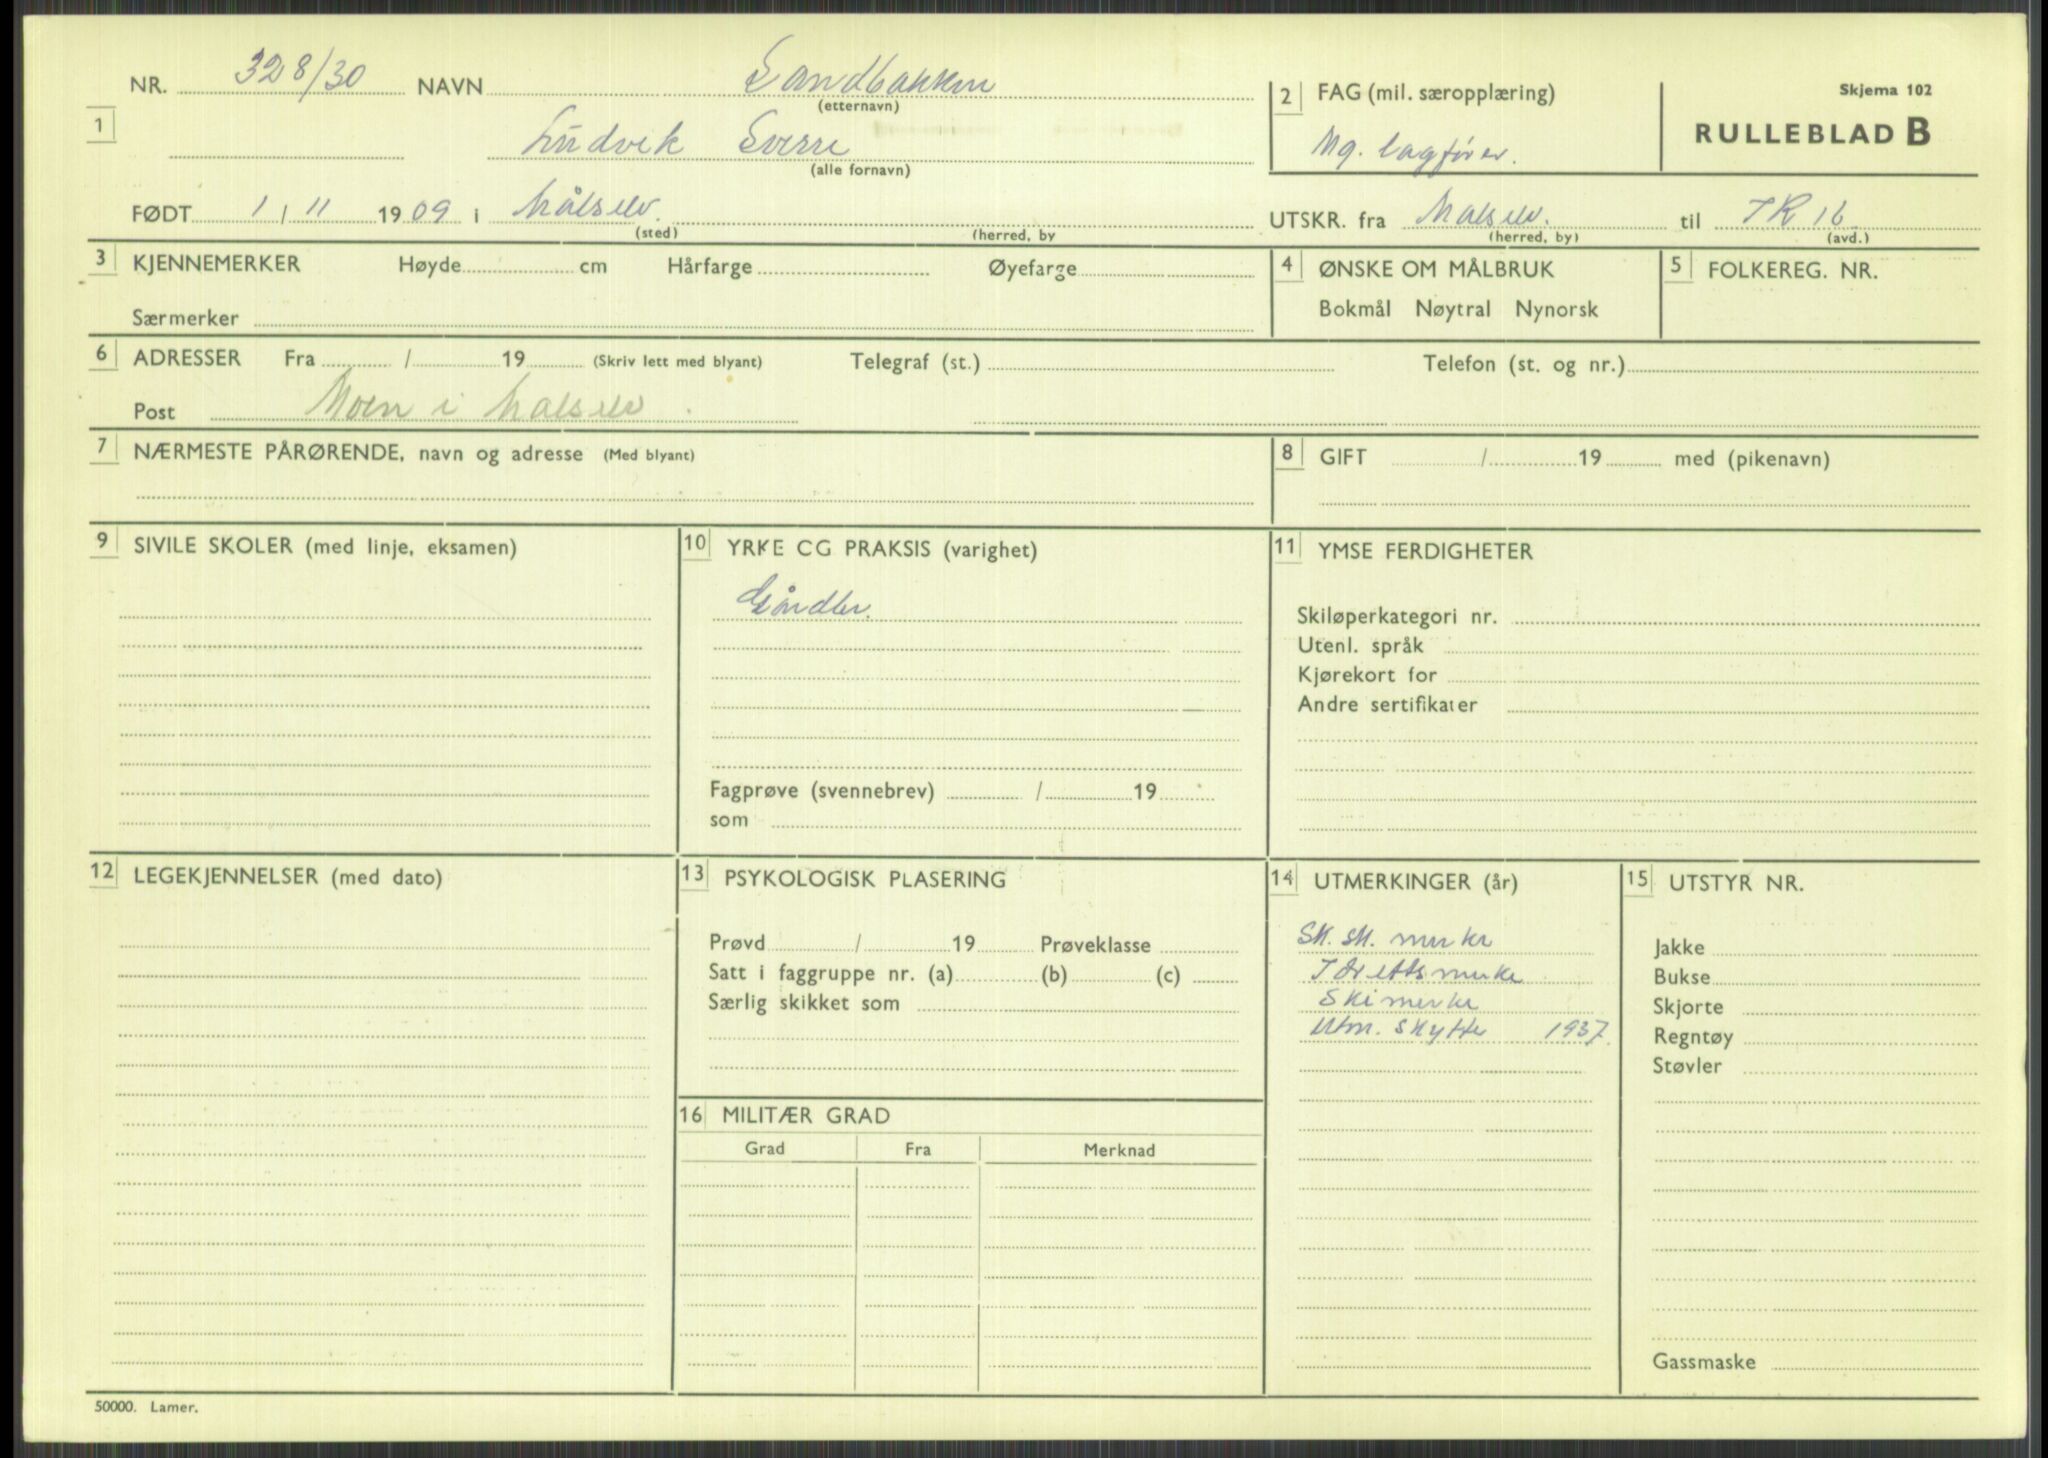 NR. 328/30 NAVN Sandbakken
(etternavn)
1 Ludvik Sverre
(alle fornavn)
FØDT 1 / 11 1909 i Målselv.
(sted) (herred, by
2 FAG (mil. særopplæring)
Mg. lagfører.
Skjema 102
RULLEBLAD B
UTSKR. fra Målselv. til IR 16
(herred, by) (avd.)
3 KJENNEMERKER Høyde cm Hårfarge Øyefarge
Særmerker
4 ØNSKE OM MÅLBRUK
Bokmål Nøytral Nynorsk
5 FOLKEREG. NR.
6 ADRESSER Fra / 19 (Skriv lett med blyant) Telegraf (st.) Telefon (st. og nr.)
Post Moen i Målselv.
7 NÆRMESTE PÅRØRENDE, navn og adresse (Med blyant)
8 GIFT / 19 med (pikenavn)
9 SIVILE SKOLER (med linje, eksamen)
10 YRKE CG PRAKSIS (varighet)
Gårdbr.
Fagprøve (svennebrev) / 19
som
11 YMSE FERDIGHETER
Skiløperkategori nr.
Utenl. språk
Kjørekort for
Andre sertifikater
12 LEGEKJENNELSER (med dato)
13 PSYKOLOGISK PLASERING
Prøvd / 19 Prøveklasse
Satt i faggruppe nr. (a) (b) (c)
Særlig skikket som
14 UTMERKINGER (år)
Sk. sk. merke
Idrettsmerke
Skimerke
Utm. skytte 1937.
15 UTSTYR NR.
Jakke
Bukse
Skjorte
Regntøy
Støvler
Gassmaske
16 MILITÆR GRAD
Grad Fra Merknad
50000. Lamer.